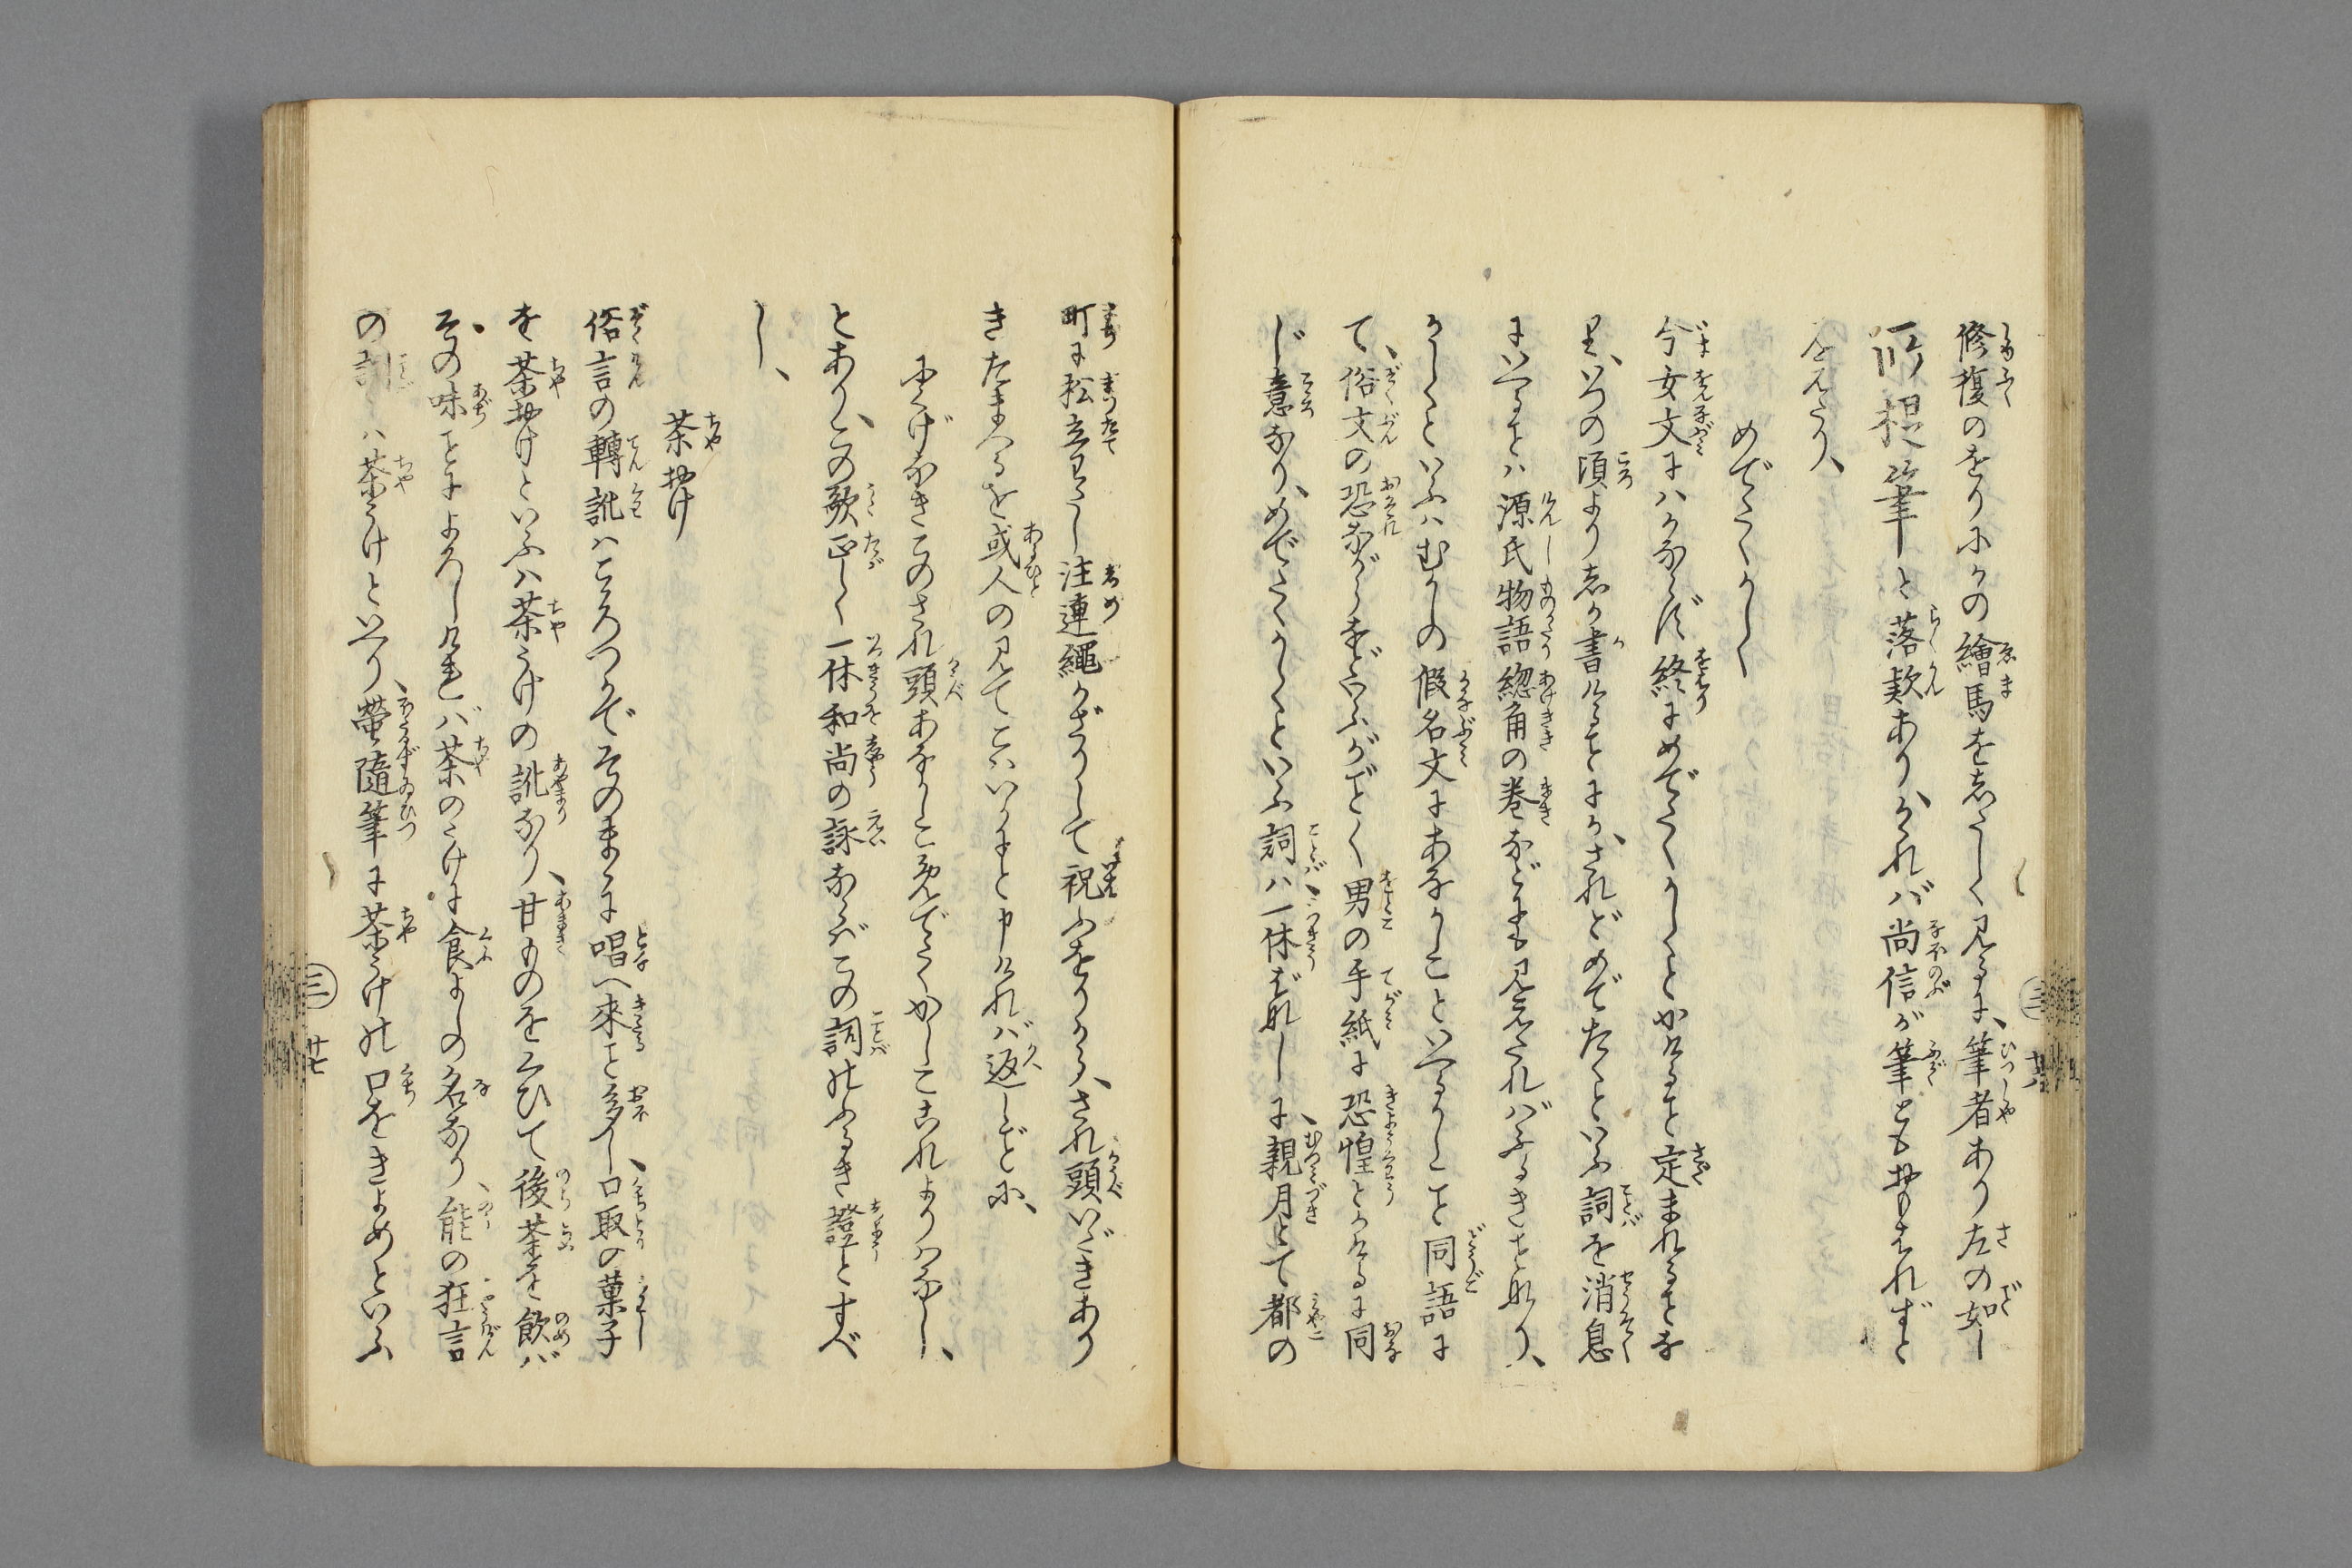 修復のをりにかの繪馬を志たしく見るに、筆者あり左の如し
筆と落款あり、かれバ尚信が筆とも おもはれずと
みえたり、
めでたくかしく
今女文にハかならず終にめでたくかしくとかけること定まれることな
り、いつの頃より志か書けることにか、されどめでたくといふ詞を消息
にいへることハ源氏物語総角の巻などにも見えたればふるきことなり、
かしくといふハむかしの假名文にあなかしこといへるかしこと同語に
て、俗文の恐ながらなどいふがごとく男の手紙に恐惶とかけるに同
じ意なり、めでたくかしくといふ詞ハ一休ばなしに、親月とて都の
町に松立わたし注連繩かざりして祝ふをりから、されij頭いだきあり
きたまへるを或人の見てこハいかにと申けれバ返しごとに、
にくげなきこのされ頭あなかしこめでたくかしここれよりハなし、
とあり、この歌正しく一休和尚の詠ならバこの詞のふるき證とすべ
し、
茶おけ
俗言の轉訛ハこころつかでそのまゝに唱へ來こと多し、口取の菓子
を茶おけといふハ茶うけの訛なり、甘ものをくひて後茶を飲バ
その味ことによろしけれバ茶のうけに食よしの名なり、能の狂言
の詞にハ茶うけといへり、螢隨筆に茶うけの口をきよめといふ
三 廿六
三 廿七